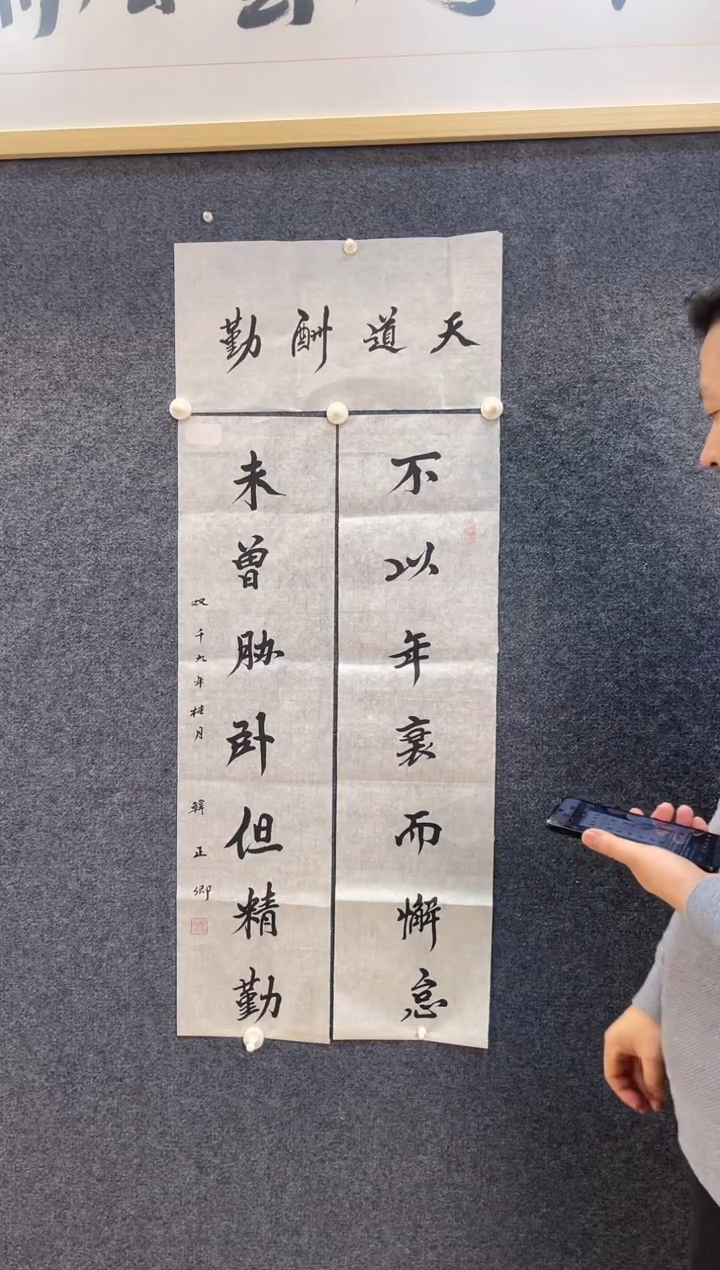 天道酬勤
不以年衰而懈怠
未曾胁卧但精勤
双千九年桂月 韓正卿